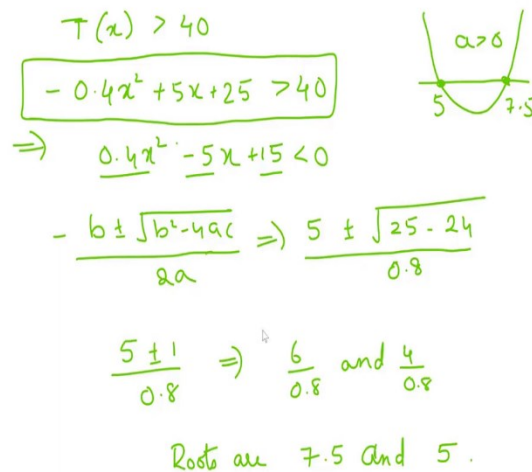 T(x) > 40
a>0
- 0.4x² + 5x + 25 > 40
5 7.5
⇒ 0.4x² - 5x + 15 < 0
- b ± √b²-4ac / 2a ⇒) 5 ± √25 - 24 / 0.8
5 ± 1 / 0.8 ⇒) 6 / 0.8 and 4 / 0.8
Roots are 7.5 and 5.